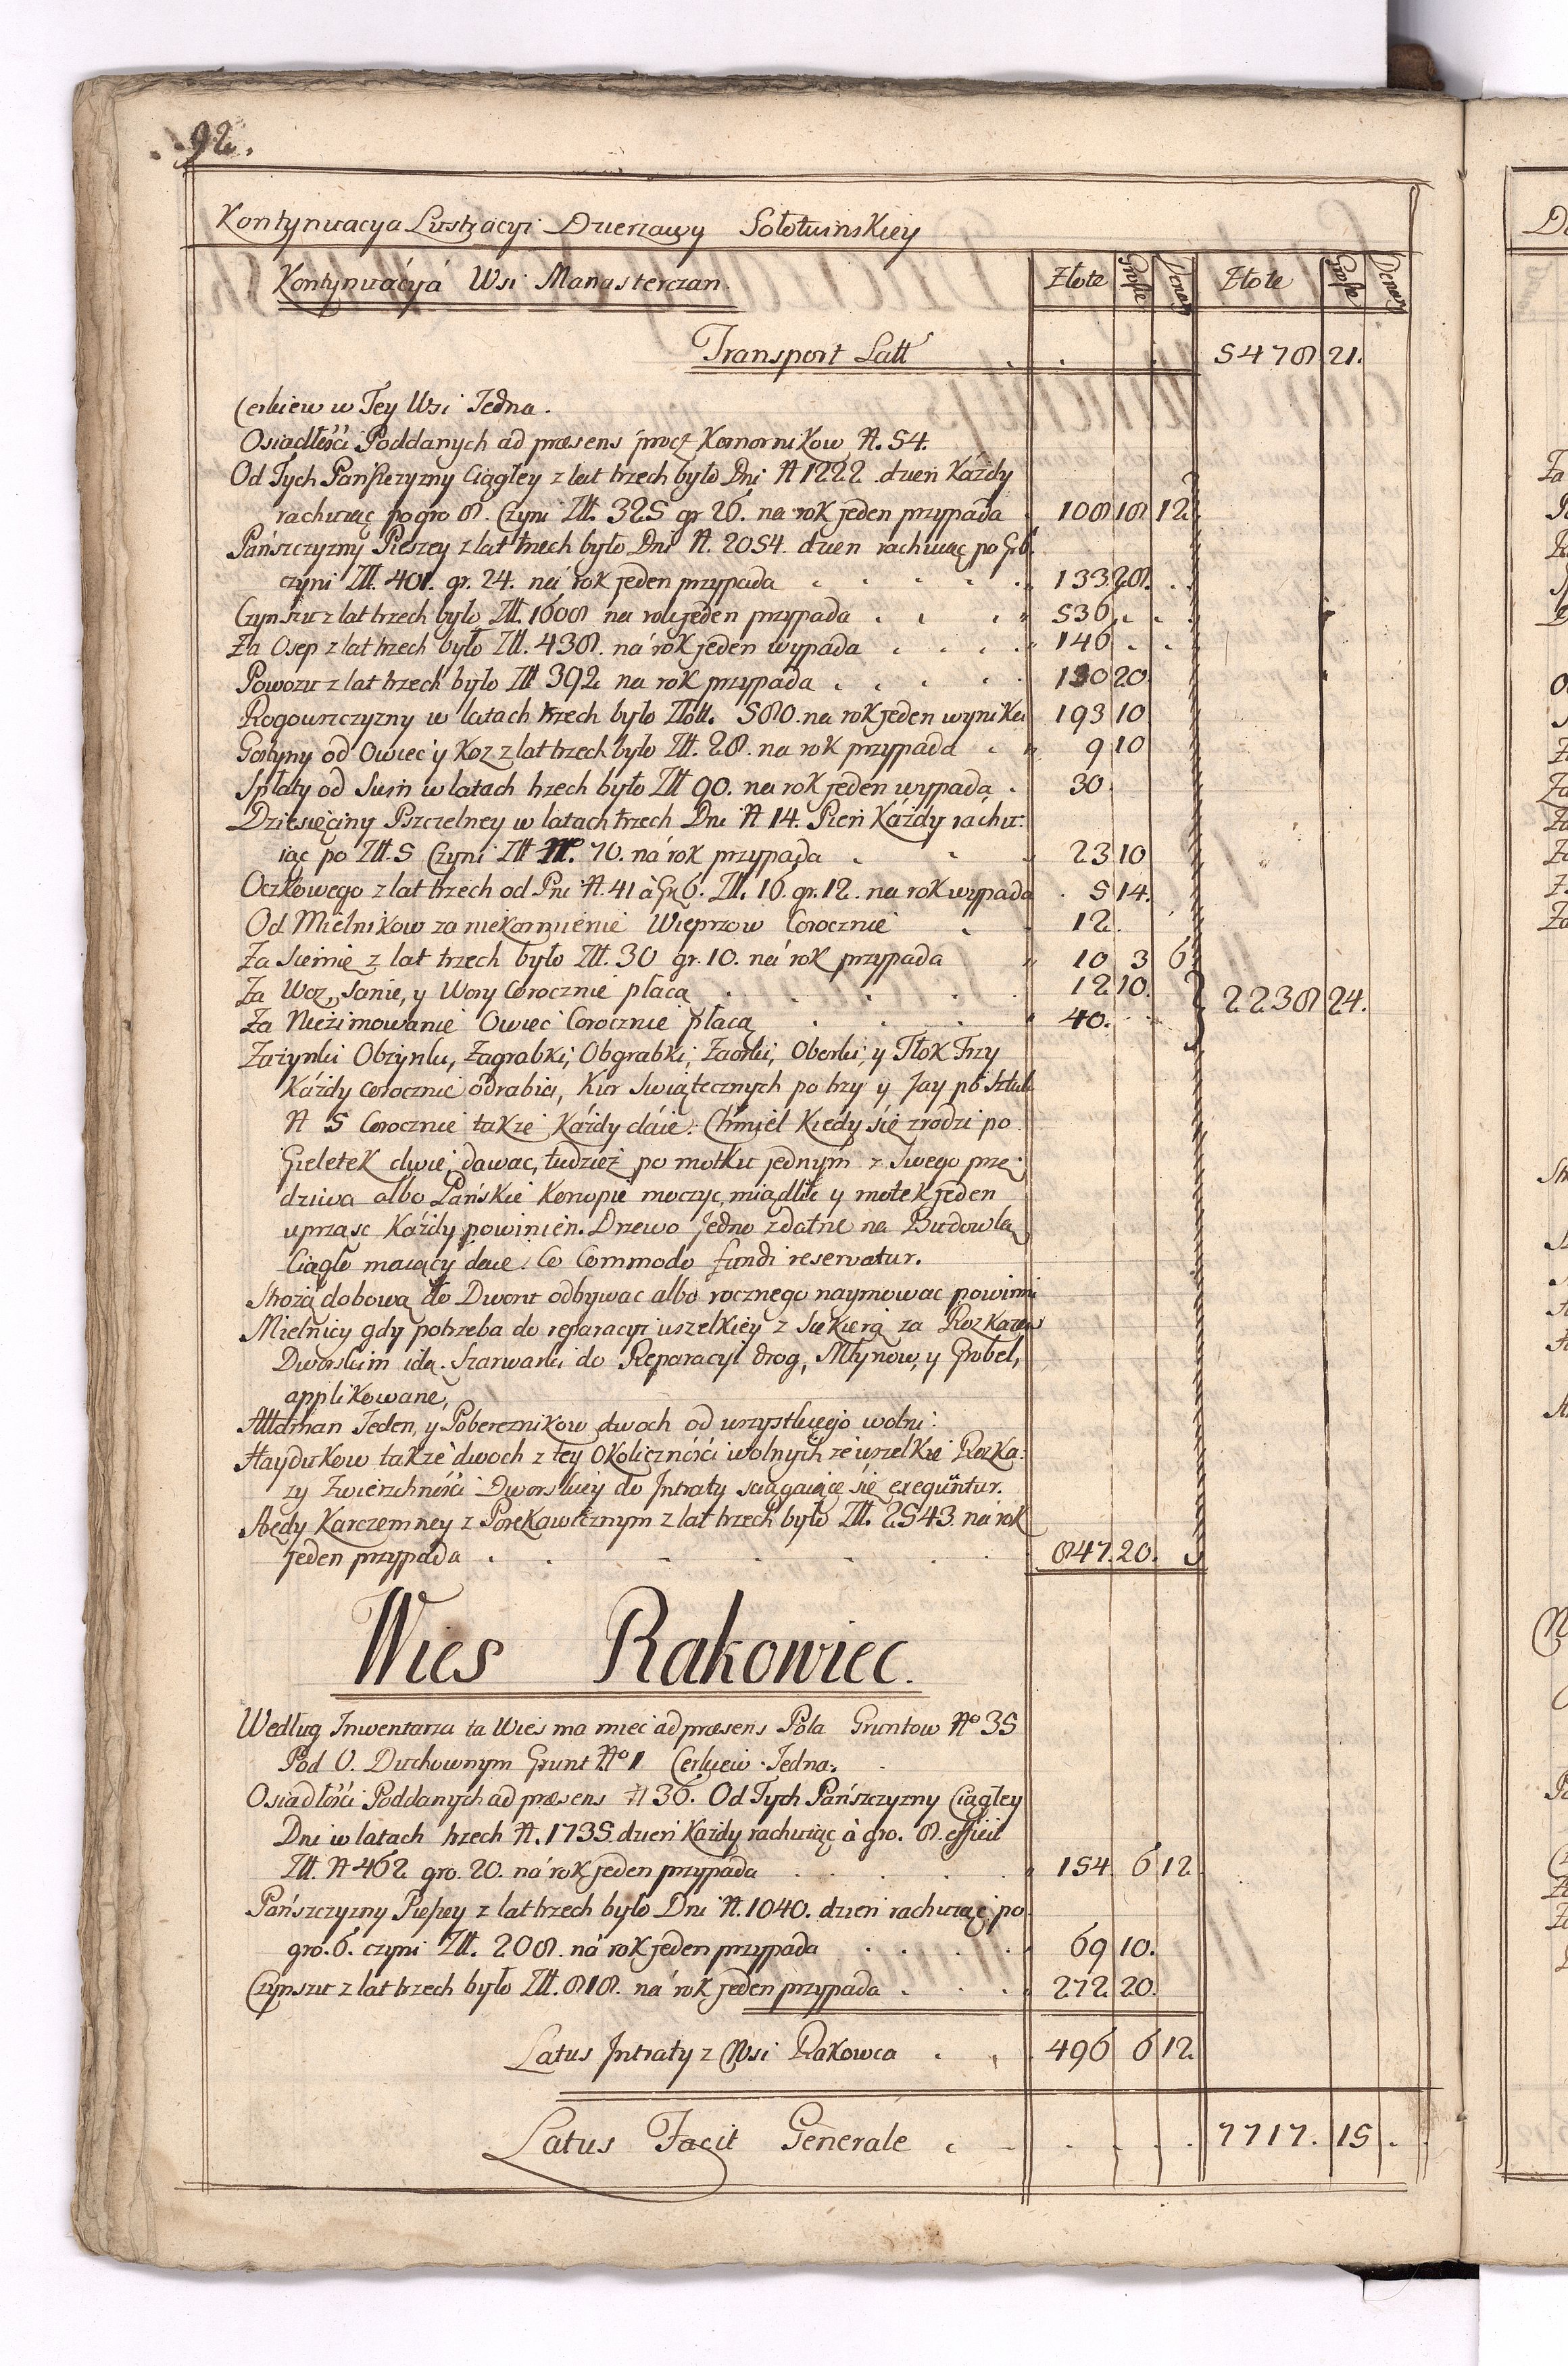 92.
Kontynuacya Lustracyi Dzierzawy Sołotwinskiey
Kontynuacya Wsi Manasterczan. Złote Grosze Denar Złote Grosze Denar
Transport Latt . . . 5478 21.
Cerkiew w Tey Wsi Jedna.
Osiadłości Poddanych ad præsens procz Komornikow N. 54.
Od Tych Panszczyzny Ciągłey z lat trzech było Dni N 1222 dzień Każdy
rachuiąc po gro 8. Czyni Złł. 325 gr 26. na rok jeden przypada 108 18 12
Pańszczyzny Pieszey z lat trzech było Dni N. 2054. dzien rachuiąc po Gr 6.
czyni Złł. 401. gr. 24. na rok jeden przypada 133 28.
Czynszu z lat trzech było Złł. 1608 na rok jeden przypada 536
Za Osep z lat trzech było Złł. 438. na rok jeden wypada 146
Powozu z lat trzech było Złł 392 na rok przypada 130 20
Rogowszczyzny w latach trzech było Złott. 580. na rok jeden wynika 193 10
Gostyny od Owiec y Koz z lat trzech było Złł. 28. na rok przypada 9 10
Spłaty od Suszn w latach trzech było Złł 90. na rok jeden wypada 30.
Dziesięciny Pszczelney w latach trzech Dni N 14. Pień Każdy rachu:
iąc po Złł. 5 Czyni Złł. 70. na rok przypada 23 10
Oczkowego z lat trzech od Pni N. 41 à Gr 6. Złł. 16. gr. 12. na rok wypada 5 14.
Od Mielnikow za niekarmienie Wieprzow Corocznie 12.
Za Siemie z lat trzech było Złł. 30 gr. 10. na rok przypada 10 3 6
Za Woz, Sanie, y Wory Corocznie płacą 12 10. 2238 24.
Za Niezimowanie Owiec Corocznie płacą 40.
Zażynki Obzynki, Zagrabki, Obgrabki, Zaorki, Oborki, y Tłok Trzy
Każdy corocznie odrabia, Kur Swiątecznych po trzy y Jay po sztuk
N 5 Corocznie także Każdy daie. Chmiel Kiedy się zrodzi po
Gieletek dwie dawac, tudzież po motku jednym z Swego prze:
dziwa albo Pańskie Konopie moczyc, miądlic y motek jeden
uprząsc Każdy powinien. Drzewo jedno zdatne na Budowlą
Ciągło maiący daie. Co Commodo fundi reservatur.
Strożą dobową do Dworu odbywac albo rocznego naymowac powinni
Mielnicy gdy potrzeba do reparacyi wszelkiey z Siekierą za Rozkazem
Dworskim idą. Szarwarki do Reparacyi drog, Młynow, y Grobel,
applikowane,
Attaman Jeden, y Pobereznikow dwoch od wszystkiego wolni.
Haydukow także dwoch z tey Okoliczności wolnych ze wszelkie Rozka:
zy Zwierzchności Dworskiey do Intraty sciągaiące się exequuntur.
Arędy Karczemney z Porękawicznym z lat trzech było Złł. 2543. na rok
jeden przypada 847. 20.
Wies Rakowiec.
Według Inwentarza ta Wies ma miec ad præsens Pola Gruntow No 35
Pod O. Duchownym Grunt No 1 Cerkiew Jedna.
Osiadłości Poddanych ad præsens N 36. Od Tych Pańszczyzny Ciągłey
Dni w latach trzech N. 1735. dzień Każdy rachuiąc à gro. 8. efficit
Złł. N 462 gro. 20. na rok jeden przypada 154. 6 12
Pańszczyzny Pieszey z lat trzech było Dni N. 1040. dzien rachuiąc po
gro. 6. czyni Złł. 208. na rok jeden przypada 69 10.
Czynszu z lat trzech było Złł. 818. na rok jeden przypada 272 20.
Latus Intraty z Wsi Rakowca 496 6 12.
Latus Facit Generale 7717. 15.